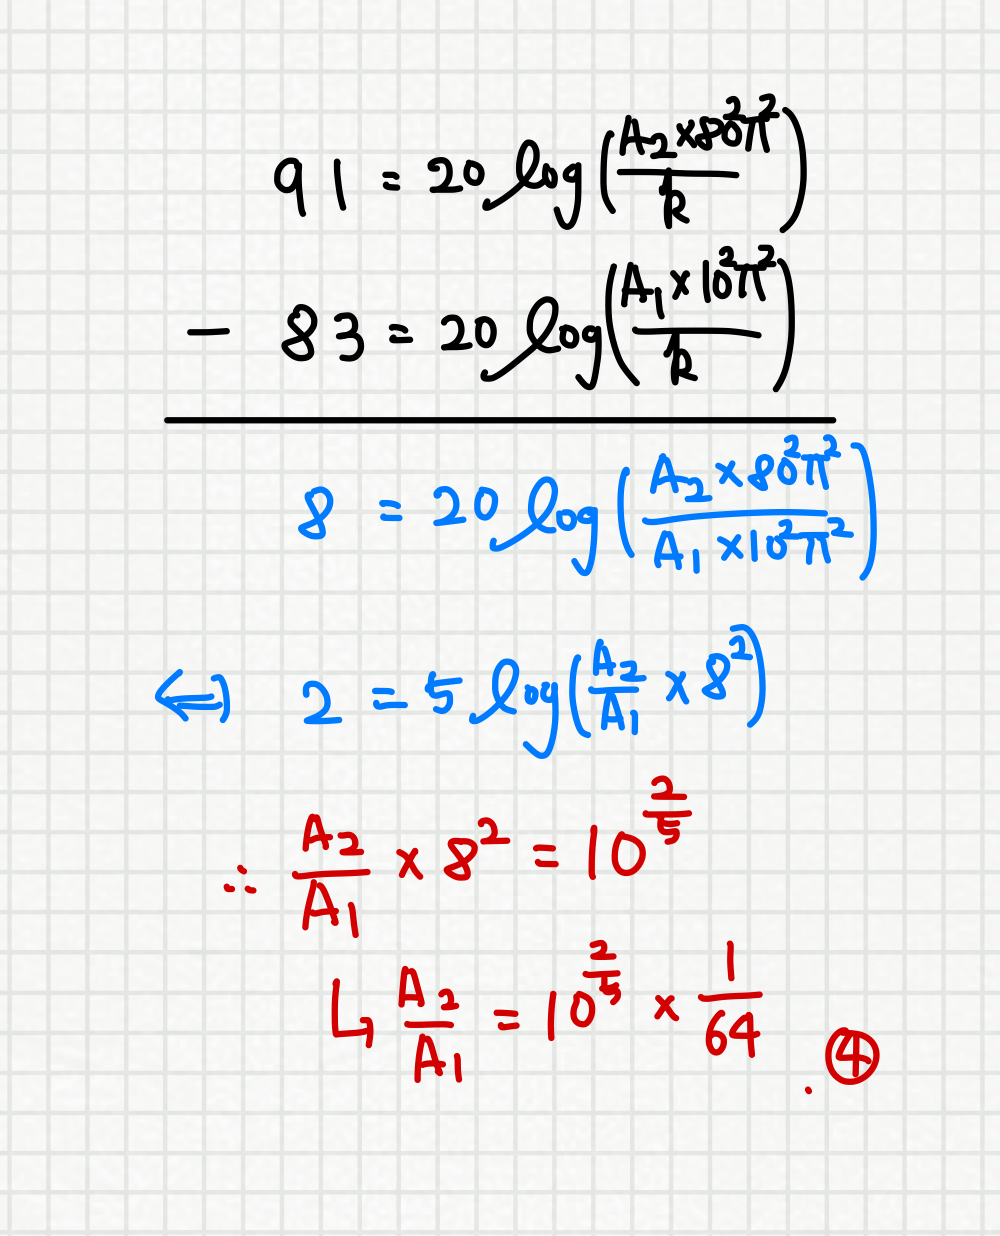 91 = 20 log(A₂×80²π²/k)
− 83 = 20 log(A₁×10²π²/k)
8 = 20 log(A₂×80²π²/A₁×10²π²)
⇔ 2 = 5 log(A₂/A₁ × 8²)
∴ A₂/A₁ × 8² = 10^(2/5)
↳ A₂/A₁ = 10^(2/5) × 1/64 . ④